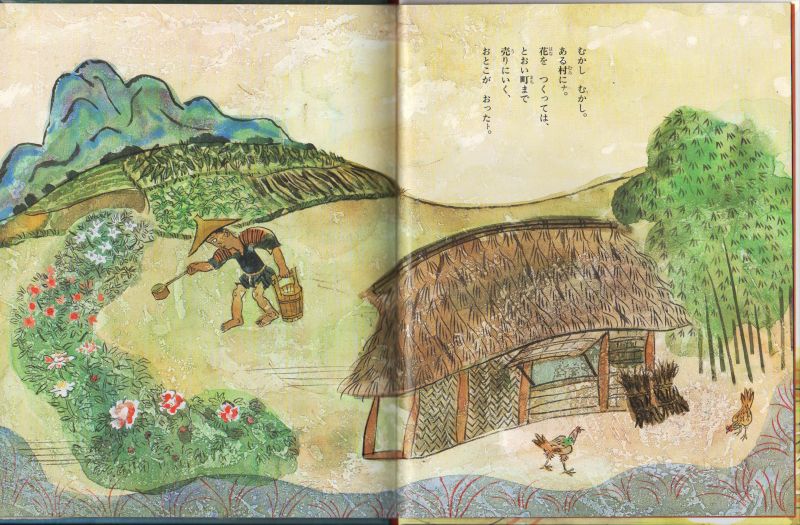 むかし むかし。
ある村にナ。
花を つくっては、
とおい町まで
売りにいく、
おとこが おったト。